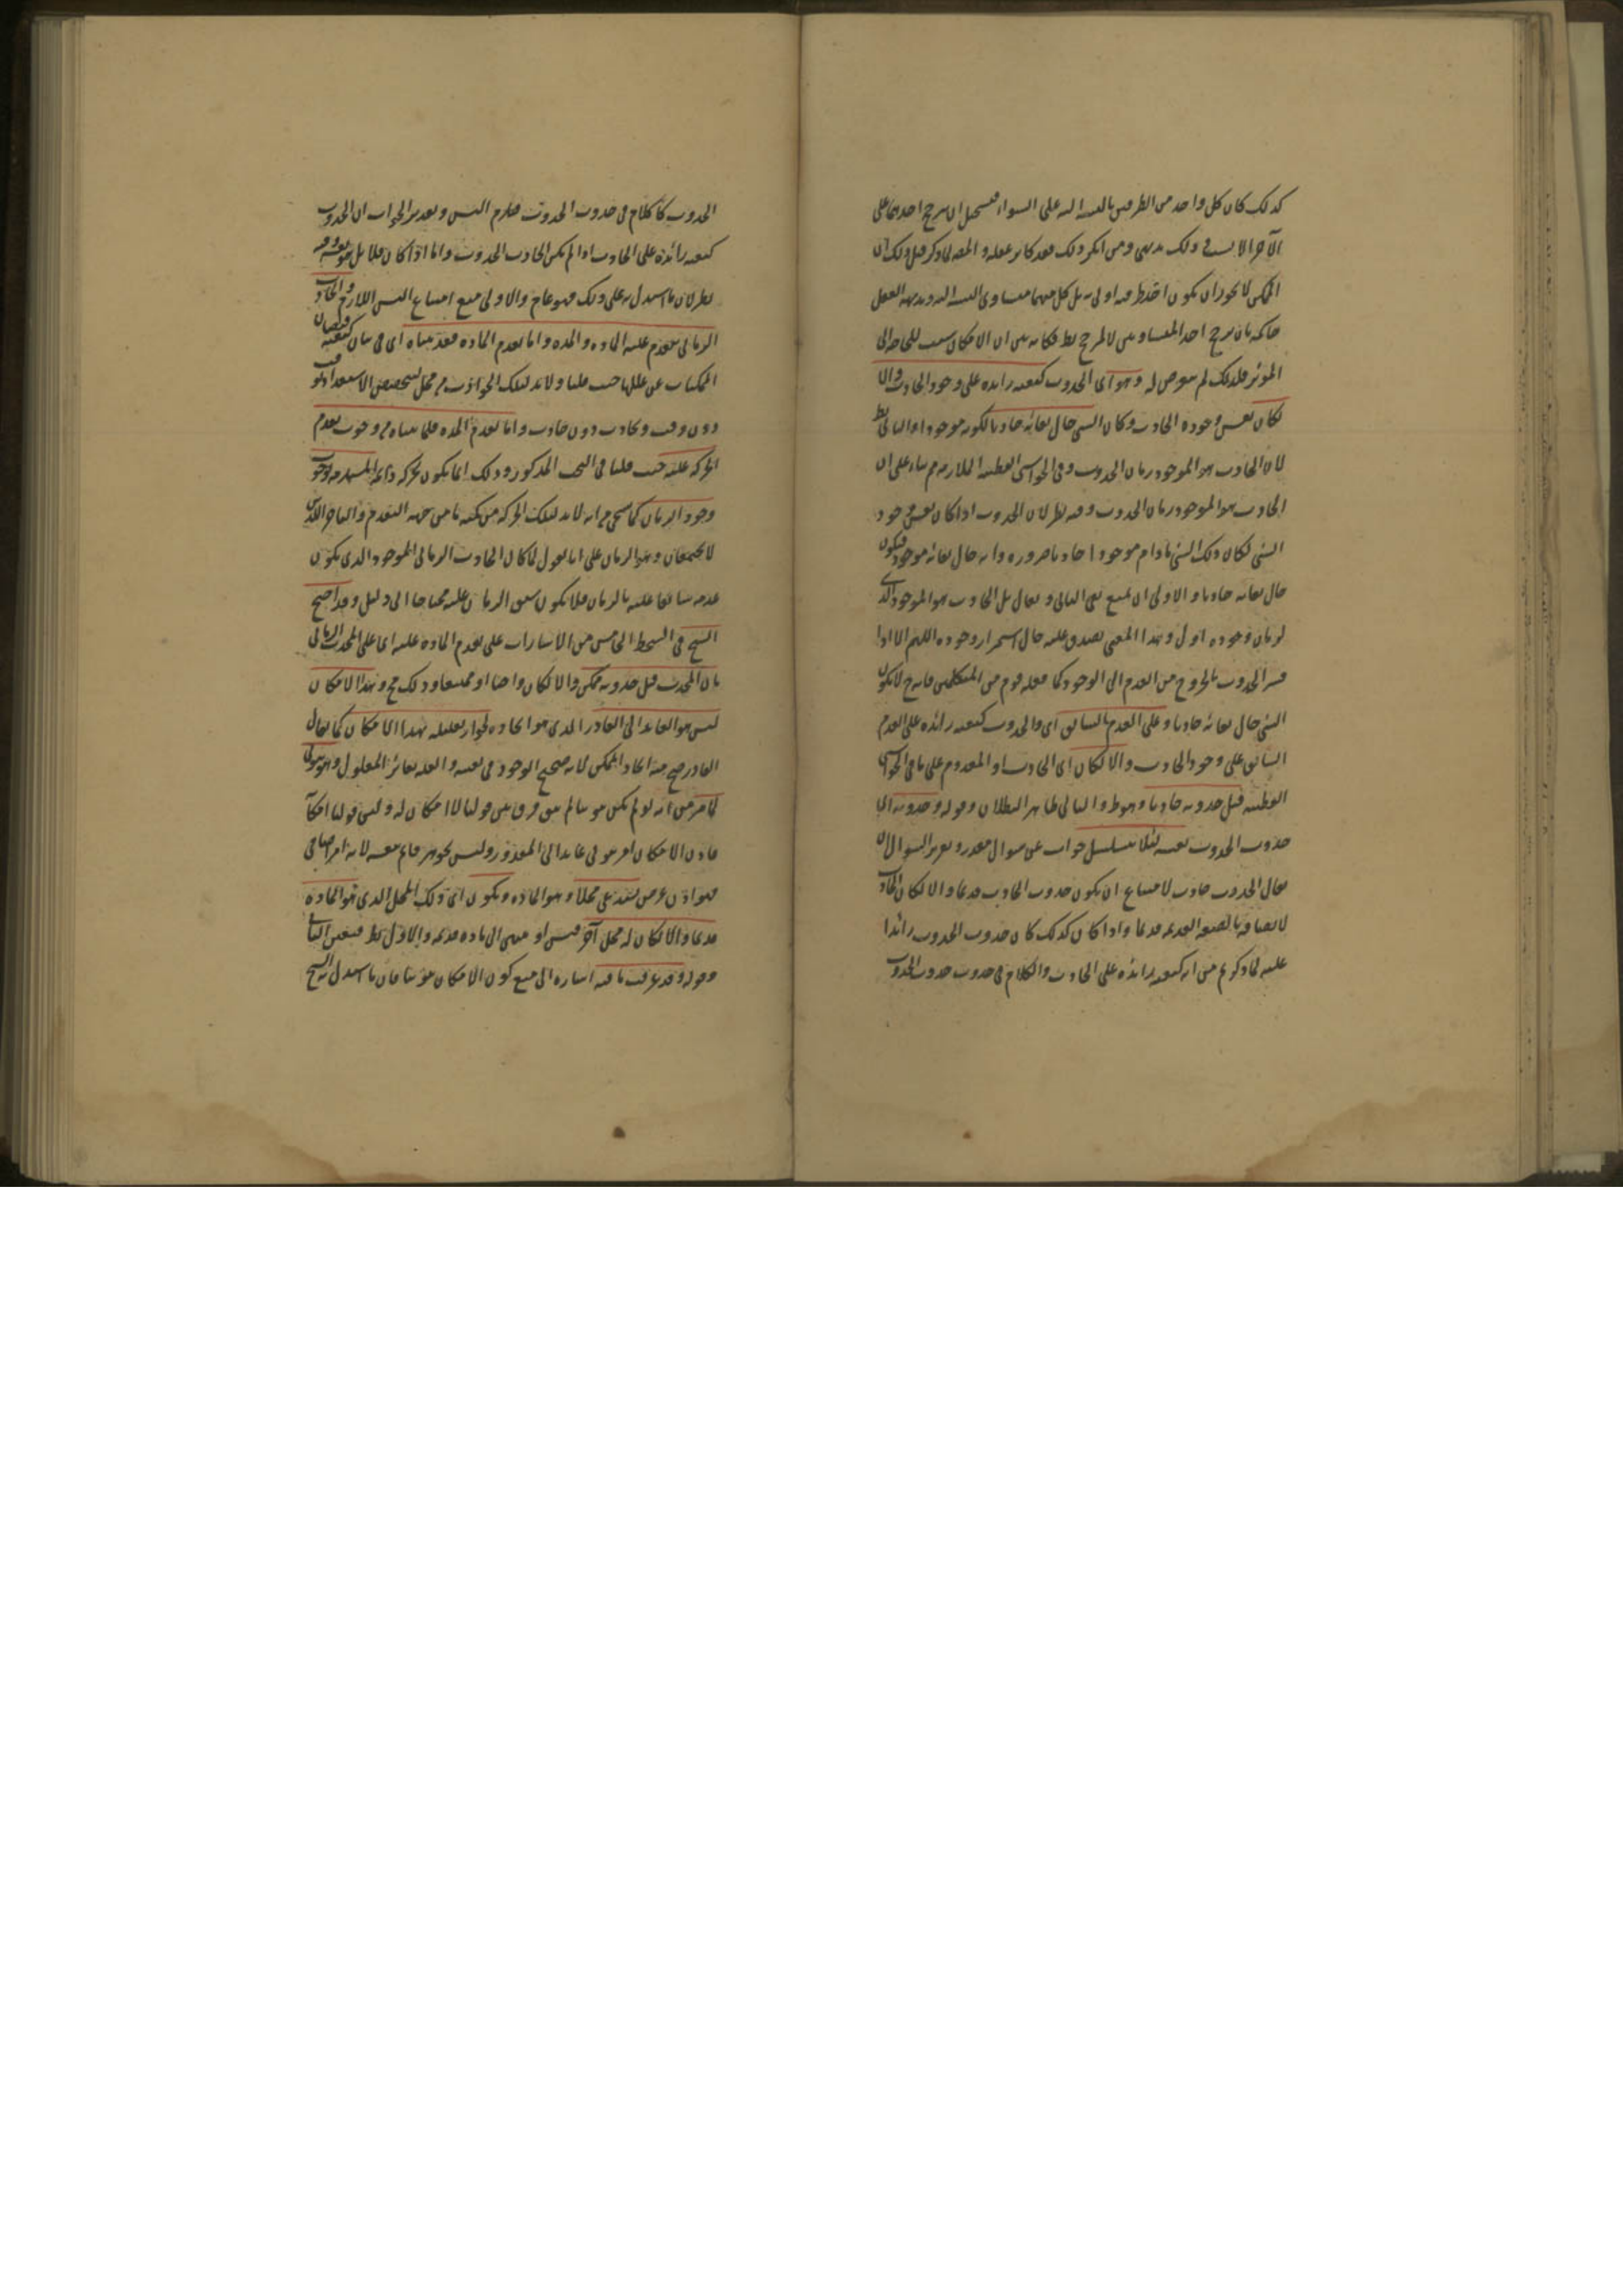 كذلك كان كل واحد من الطرفين بالنسبة اليه على السواء فيستحيل ان يترجح احدهما على
الآخر الا لسبب وذلك بديهي ومن انكر ذلك فقد كابر عقله و لما ذكر قبل ذلك ان
الممكن لا يجوز ان يكون احد طرفيه اولى به بل كل منهما متساوى النسبة اليه وبديهة العقل
حاكمة بان ترجح احد المتساويين لا لمرجح بط فكانه بين ان الامكان سبب للحاجة الى
المؤثر فلذلك لم يتعرض له وهو اى الحدوث كيفية زايدة على وجود الحادث والا
لكان نفس وجوده الحادث وكان الشى حال بقائه حادثا لكونه موجودا والتالى بط
لان الحادث هو الموجود زمان الحدوث وفى الحواشى القطبية الملازمة بناء على ان
الحادث هو الموجود زمان الحدوث وفيه نظر لان الحدوث اذا كان نفس وجود
الشى لكان ذلك الشى مادام موجودا حادثا ضرورة وانه حال بقائه موجود فيكون
حال بقائه حادثا و الاولى ان يمنع نفى التالى و يقال بل الحادث هو الموجود الذى
لزمان وجوده اول وهذا المعنى يصدق عليه حال استمرار وجوده اللهم الا اذا
فسر الحدوث بالخروج من العدم الى الوجود كما فعله قوم من المتكلمين فانه ح لا يكون
الشى حال بقائه حادثا وعلى العدم السابق اى والحدوث كيفية زائدة على العدم
السابق على وجود الحادث والا لكان اى الحادث او المعدوم على ما فى الحواشى
القطبية قبل حدوثه حادثا وهو ط والتالى ظاهر البطلان وقوله وحدوثه اى
حدوث الحدوث نفسه لئلا يتسلسل جواب عن سوال مقدر وتقرير السوال ان
يقال الحدوث حادث لامتناع ان يكون حدوث الحادث قديما والا لكان الحادث
لاتصافه بالصفة القديمة قديما واذا كان كذلك كان حدوث الحدوث زائدا
عليه لما ذكرتم من انه كيفية زائدة على الحادث والكلام فى حدوث حدوث الحدوث
الحدوث كالكلام فى حدوث الحدوث فيلزم التس وتقرير الجواب ان الحدوث
كيفية زائدة على الحادث اذا لم يكن الحادث الحدوث واما اذا كان فلا بل هو نفسه وفيه
نظر لان ما استدل به على ذلك فهو عام والاولى منع امتناع التس اللازم والحادث
الزمانى يتقدم عليه المادة والمدة واما تقدم المادة فقد بيناه اى فى بيان كيفية فيضان
الممكنات عن عللها حيث قلنا ولا بد لتلك الحوادث من محل ليتخصص الاستعداد بوقت
دون وقت وبحادث دون حادث واما تقدم المدة فلما بيناه من وجوب تقدم
الحركة عليه حيث قلنا فى البحث المذكور وذلك انما يكون بحركة دائمة المستلزمة لوجوب
وجود الزمان كما سيجى من انه لا بد لتلك الحركة من كمية ما من جهة التقدم والتاخر اللذين
لا يجتمعان وهو الزمان على انا نقول لما كان الحادث الزمانى الموجود الذى يكون
عدمه سابقا عليه بالزمان فلا يكون سبق الزمان عليه محتاجا الى دليل وقد احتج
الشيخ فى النمط الخامس من الاشارات على تقدم المادة عليه اى على المحدث الزمانى
بان المحدث قبل حدوثه ممكن والا لكان واجبا او ممتنعا وذلك مح وهذا الامكان
ليس هو العائد الى القادر الذى هو ايجاده لجواز تعليله بهذا الامكان كما يقال
القادر صح منه ايجاد الممكن لانه صحيح الوجود فى نفسه والعلة تغاير المعلول وهو ثبوتى
لما مر من انه لو لم يكن ثبوتيا لم يبق فرق بين قولنا لا امكان له وليس قولنا امكانه
فاذن الامكان امر ثبوتى عايد الى المقدور وليس بجوهر قايم بنفسه لانه امر اضافى
فهو اذن عرض يستدعى محلا وهو المادة ويكون اى ذلك المحل الذى هو المادة
قديما والا لكان له محل آخر فيتس او ينتهى الى مادة قديمة والاول بط فتعين الثانى
وقوله وقد عرفت ما فيه اشارة الى منع كون الامكان ثبوتيا فان ما استدل به الشيخ